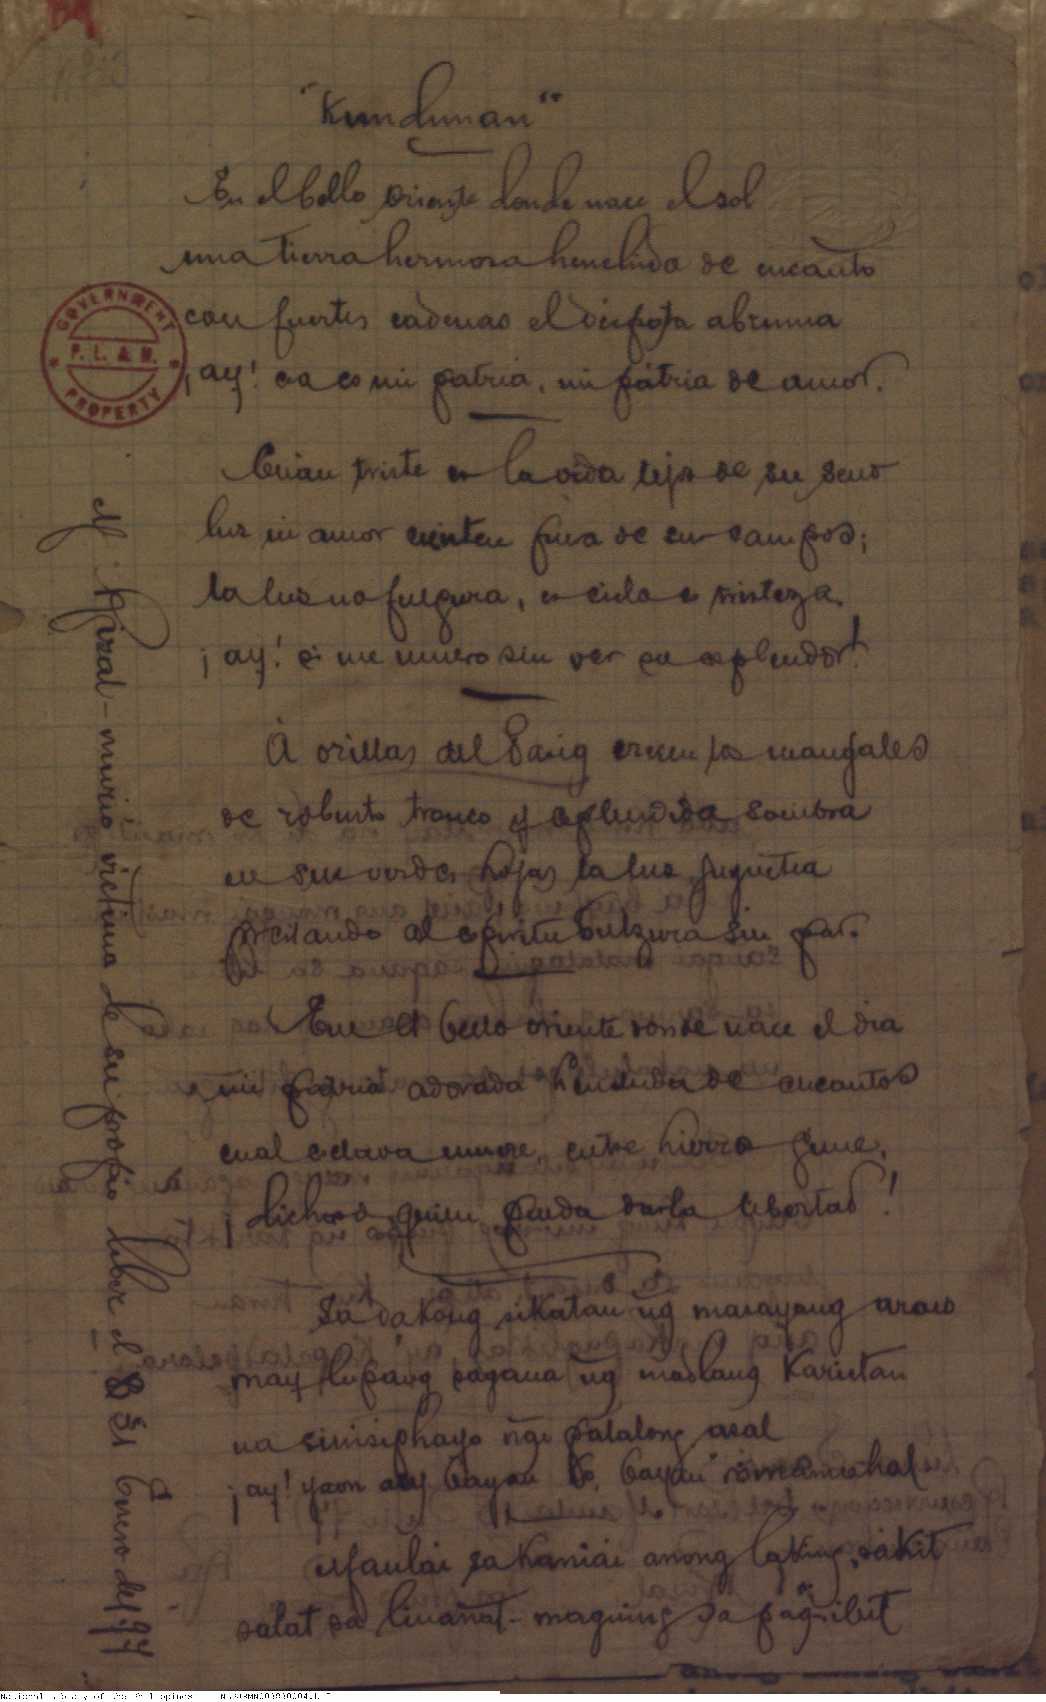 "Kundiman"
En el bello oriente donde nace el sol
una tierra hermosa henchida de encanto
con fuertes cadenas el déspota abruma
¡ay! esa es mi patria, mi pátria de amor.
Cuán triste es la vida lejos de su seno
luz ni amor existen fuera de sus campos;
la luz no fulgura, su cielo es tristeza
¡ay! si me muero sin ver su esplendor!
A orillas del Pasig crecen los mangales
de robusto tronco y esplendida sombra
en sus verdes hojas la luz juguetea
prestando al espiritu dulzura sin par.
En el bello oriente donde nace el dia
mi pátria adorada henchida de encantos
cual esclava muere, entre hierros gime,
¡dichoso quien pueda darla libertad!
Sa dakong sikatan ng masayang araw
may lupang sagana ng madlang karictan
na sinisiphayo nga palalong asal
¡ay! yaon ay bayan ko, bayan
Maulai sa kaniai anong laking sakit
salat sa liuanat maguing sa pag-ibit
Rizal - murió victima de su propio el 31 Enero del 97
GOVERNMENT
P. L. & M.
PROPERTY
National Library of the Philippines